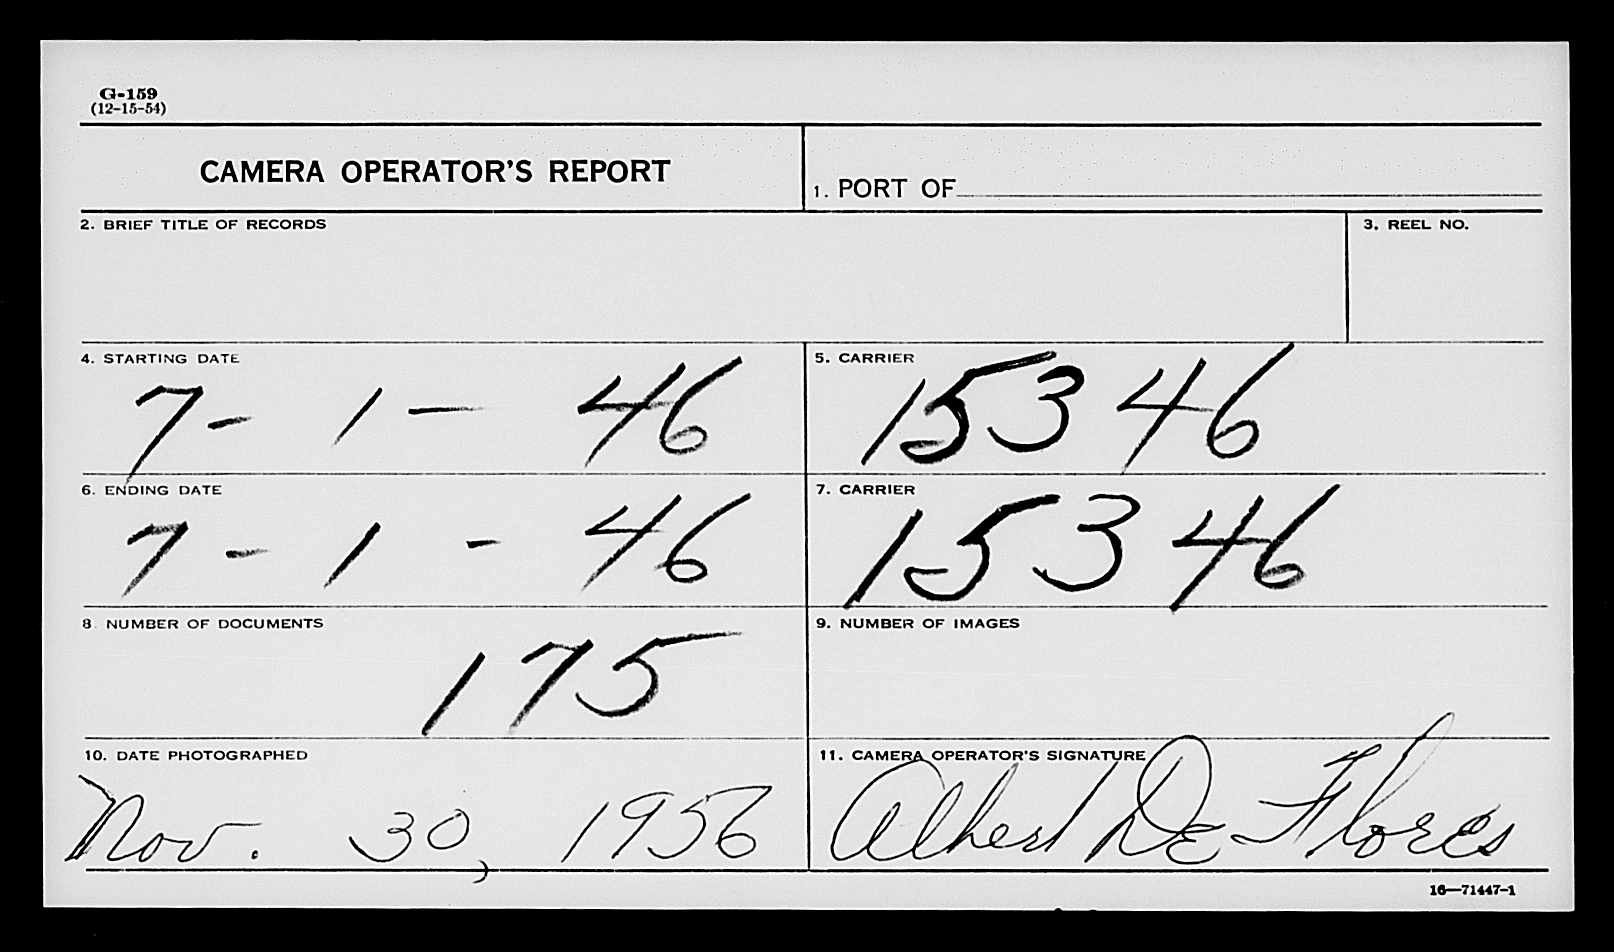 G-159
(12-15-54)
CAMERA OPERATOR'S REPORT
1. PORT OF
2. BRIEF TITLE OF RECORDS
3. REEL NO.
4. STARTING DATE
7 - 1 - 46
5. CARRIER
15346
6. ENDING DATE
7 - 1 - 46
7. CARRIER
15346
8 NUMBER OF DOCUMENTS
175
9. NUMBER OF IMAGES
10. DATE PHOTOGRAPHED
Nov. 30, 1956
11. CAMERA OPERATOR'S SIGNATURE
Albert De Flores
16—71447-1